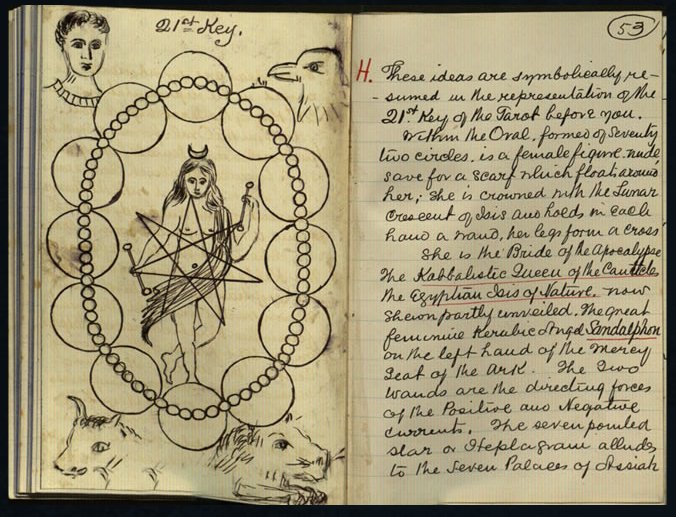 21st Key.
53
H. These ideas are symbolically re-
-sumed in the representation of the
21st Key of the Tarot before you.
Within the Oval, formed of Seventy
two circles, is a female figure, nude,
save for a scarf which floats around
her; she is crowned with the Lunar
Crescent of Isis and holds in each
hand a wand, her legs form a cross
She is the Bride of the Apocalypse
the Kabbalistic Queen of the Canticles
the Egyptian Isis of Nature. now
shewn partly unveiled, the great
feminine Kerubic Angel Sandalphon
on the left hand of the Mercy
Seat of the Ark. The Two
wands are the directing forces
of the Positive and Negative
currents. The seven pointed
star or Heptagram alludes
to the Seven Palaces of Assiah